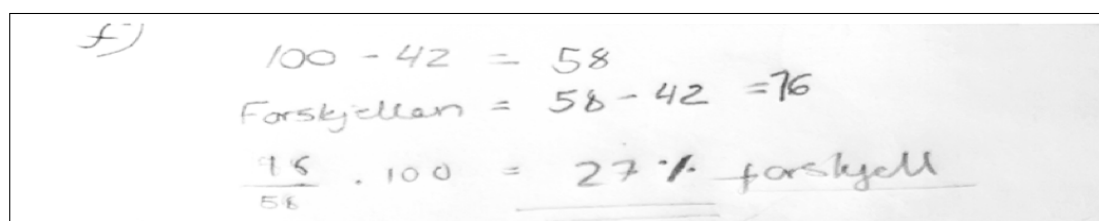 f)
100 - 42 = 58
Forskjellen = 58 - 42 = 16
16/58 · 100 = 27 % forskjell